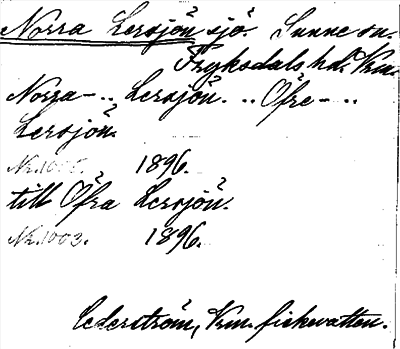 Norra Lersjön sjö. Sunne sn.
Fryksdals hd. Vrm.
Norra-.. Lersjön. .. Öfre-..
Lersjön.
Nr. 1005. 1896.
till Öfra Lersjön.
Nr. 1003. 1896.
Cederström, Vrm. fiskvatten.